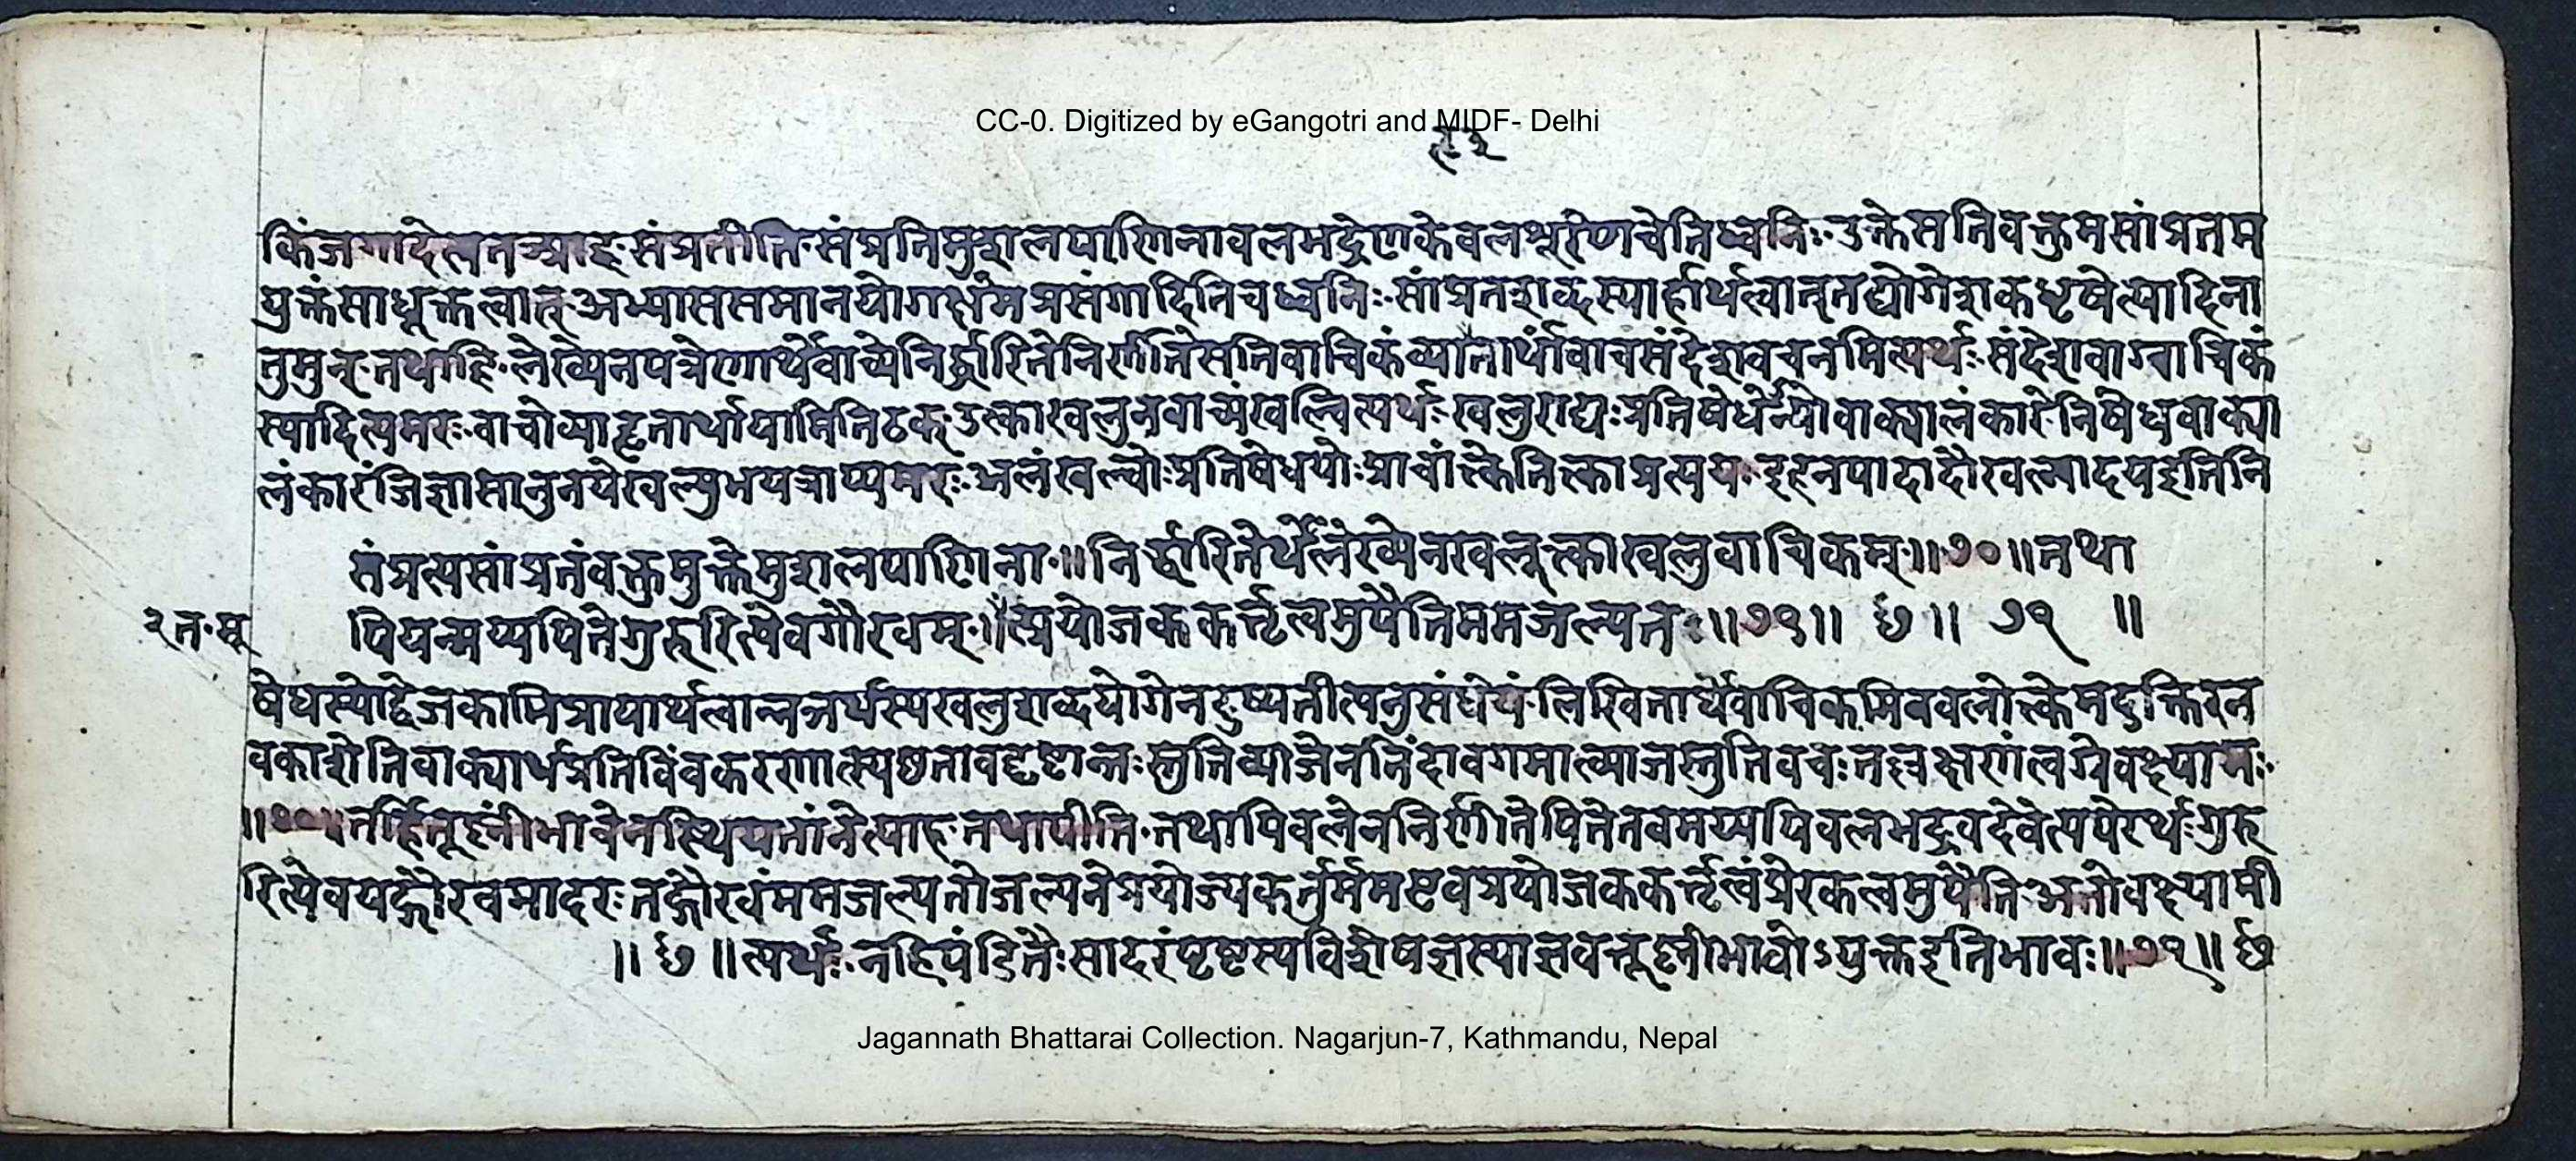 CC-0. Digitized by eGangotri and MIDF- Delhi
किंजगादेत्यतआह॰संप्रतीति॰संप्रतिमुशलपाणिनावलभद्रेणकेवलशूरेणचेतिध्वनिः॰उक्तेसतिवक्तुमसांप्रतम
युक्तंसाधूक्तत्वात्॰अभ्याससमानयोगक्षेमप्रसंगादितिचध्वनिः॰सांप्रतशब्दस्यार्हार्थत्वात्तद्योगेशकधृषेत्यादिना
तुमुन्॰तथाहि॰लेख्येनपत्रेणार्थेवाच्येनिर्द्धारितेनिर्णीतेसतिवाचिकंव्याहृतार्थांवाचसंदेशवचनमित्यर्थः॰संदेशवाग्वाचिकं
स्यादित्यमरः॰वाचोव्याहृतार्थायामितिठक्॰उत्काखलुनवाच्यंखल्वित्यर्थः॰खलुराद्यः॰प्रतिषेधेन्योवाक्यालंकारे॰निषेधवाक्या
लंकारंजिज्ञासानुनयेखल्वुभयत्राप्यमरः॰अलंखल्वोःप्रतिषेधयोःप्राचांत्केतित्काप्रत्ययः॰इहनपादादौखल्वादयइतिनि
संप्रत्यसांप्रतंवक्तुमुक्तेमुशलपाणिना॰॥निर्द्धारितेर्थेलेख्येनखलूत्काखलुवाचिकम्॰॥७०॥तथा
२त॰मू
पियन्मय्यपितेगुरुरित्येवगौरवम्॰॥त्प्रयोजककर्त्तृत्वमुपैतिममजल्पतः॥७१॥ छ॥ ७१ ॥
षेधस्योद्वेजकाभिप्रायार्थत्वान्नञर्थस्यखलुशब्दयोगेनदुष्यतीत्यनुसंधेयं॰लिखितार्थेवाचिकमिवबलोत्केमदुक्तिरन
वकाशेतिवाक्यार्थप्रतिविंवकरणात्स्पष्टतावद्दृष्टान्तःस्तुतिव्याजेननिंदावगमात्व्याजस्तुतिवचःतल्लक्षणंत्वग्रेवक्ष्यामः॰
॥७०॥तर्हितूष्णींभावेनस्थियतांनेत्याह॰तथापीति॰तथापिबलेननिर्णीतेपितेतवमय्यपिवलभद्रवदेवेत्यपेरर्थःगुरु
रित्येवयद्गौरवमादरःतद्गौरवंममजल्पतोजल्पनेप्रयोज्यकर्तुर्ममष्टवप्रयोजककर्त्तृत्वंप्रेरकत्वमुपैति॰अतोवक्ष्यामी
॥ छ ॥त्यर्थः॰नहिपंडितैःसादरंपृष्टस्यविशेषज्ञस्याज्ञवत्तूष्णींभावोऽयुक्तइतिभावः॥७१॥ छ
Jagannath Bhattarai Collection. Nagarjun-7, Kathmandu, Nepal